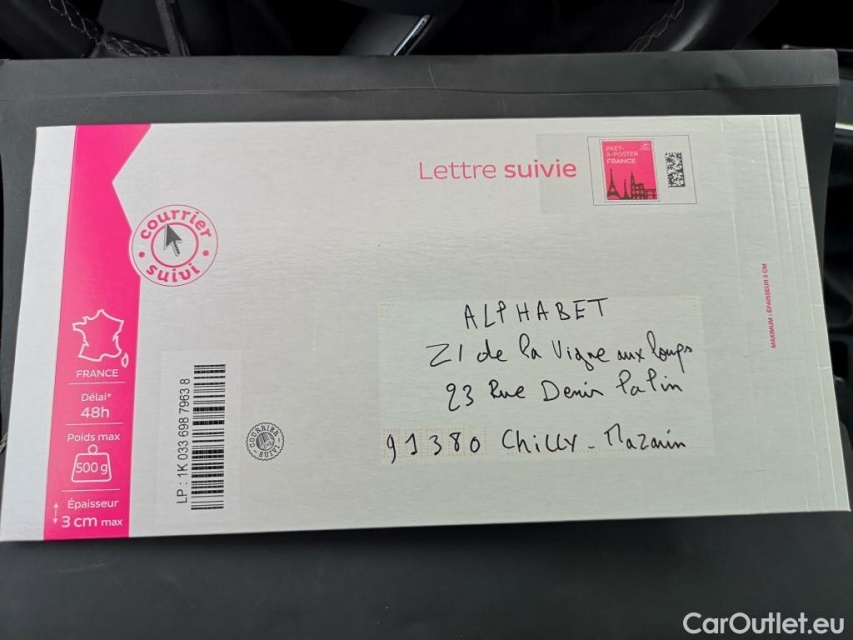 Lettre suivie
PRÊT-
À-POSTER
FRANCE
courrier
suivi
MAXIMUM : ÉPAISSEUR 3 CM
ALPHABET
ZI de la Vigne aux loups
23 Rue Denis Papin
91380 CHILLY-Mazarin
FRANCE
Délai*
48h
Poids max
500 g
Épaisseur
3 cm max
LP : 1K 033 698 7963 8
COURRIER
SUIVI
CarOutlet.eu